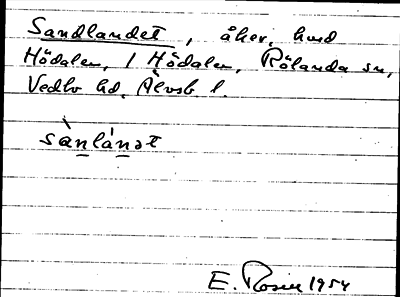 Sandlandet, åker, hmd
Hödalen, 1 Hödalen, Rölanda sn,
Vedbo hd, Älvsb l.
sànlánət
E. Rosin 1954